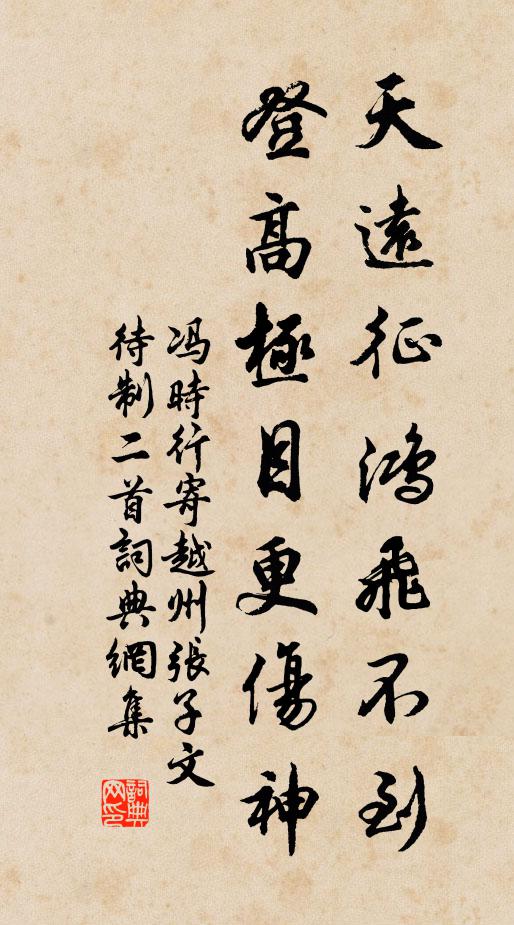 天遠征鴻飛不到
登高極目更傷神
冯時行寄越州張子文
待制二首詞典網集
詞典
网印